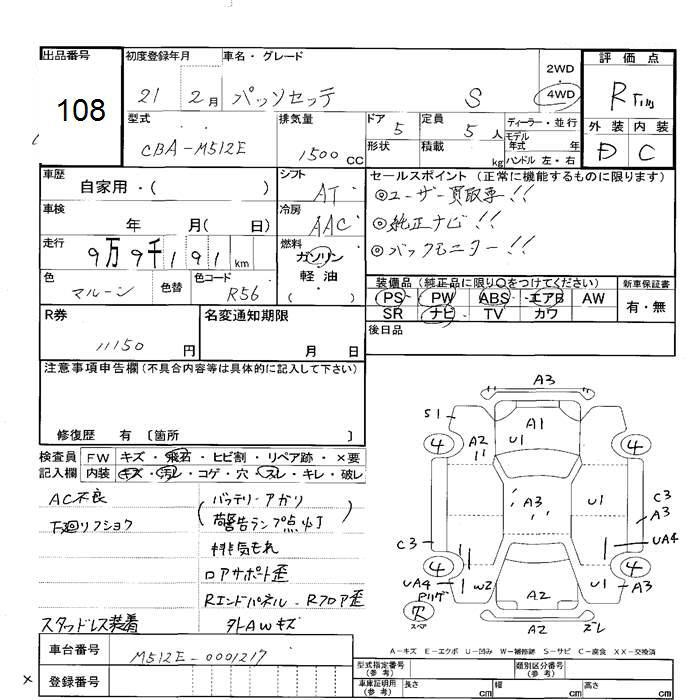 出品番号 初度登録年月 車名・グレード 評価点
108 21 2月 パッソセッテ S 2WD 4WD R
型式 排気量 ドア 定員 ディーラー・並行 外装 内装
CBA-M512E 1500CC 5 5人 モデル年式 年 D C
形状 積載 kg ハンドル 左・右
車歴 シフト セールスポイント (正常に機能するものに限ります)
自家用・( ) AT ◎ユーザー買取車!!
車検 冷房 ◎純正ナビ!!
年 月( 日) AAC ◎バックモニター!!
走行 燃料
9万9千191km ガソリン・軽油 ( )
色 色替 色コード 装備品(純正品に限り○をつけてください) 新車保証書
マルーン R56 PS PW ABS エアB AW 有・無
SR ナビ TV カワ
R券 名変通知期限 後日品
11150円 月 日
注意事項申告欄(不具合内容等は具体的に記入して下さい)
修復歴 有 〔箇所 〕
検査員 FW キズ・飛石・ヒビ割・リペア跡・×要
記入欄 内装 キズ・汚レ・コゲ・穴・スレ・キレ・破レ
AC不良 (バッテリーアガリ
下廻リフショク 荷警告ランプ点灯)
排気もれ
ロアサポート歪
Rエンドパネル・Rフロア歪
スタッドレス装着 外AWキズ
A3
S1 A1
4 A2 U1 4
A3 U1 C3
A3
C3 UA4
4 4
UA4 W2 U1 A3
Rリゲ A2
穴 スペア A2 ズレ
A-キズ E-エクボ U-凹み W-補修跡 S-サビ C-腐食 XX-交換済
車台番号 M512E-0001217
型式指定番号(参考) 類別区分番号(参考)
× 登録番号
車庫証明用(参考) 長さ cm 幅 cm 高さ cm